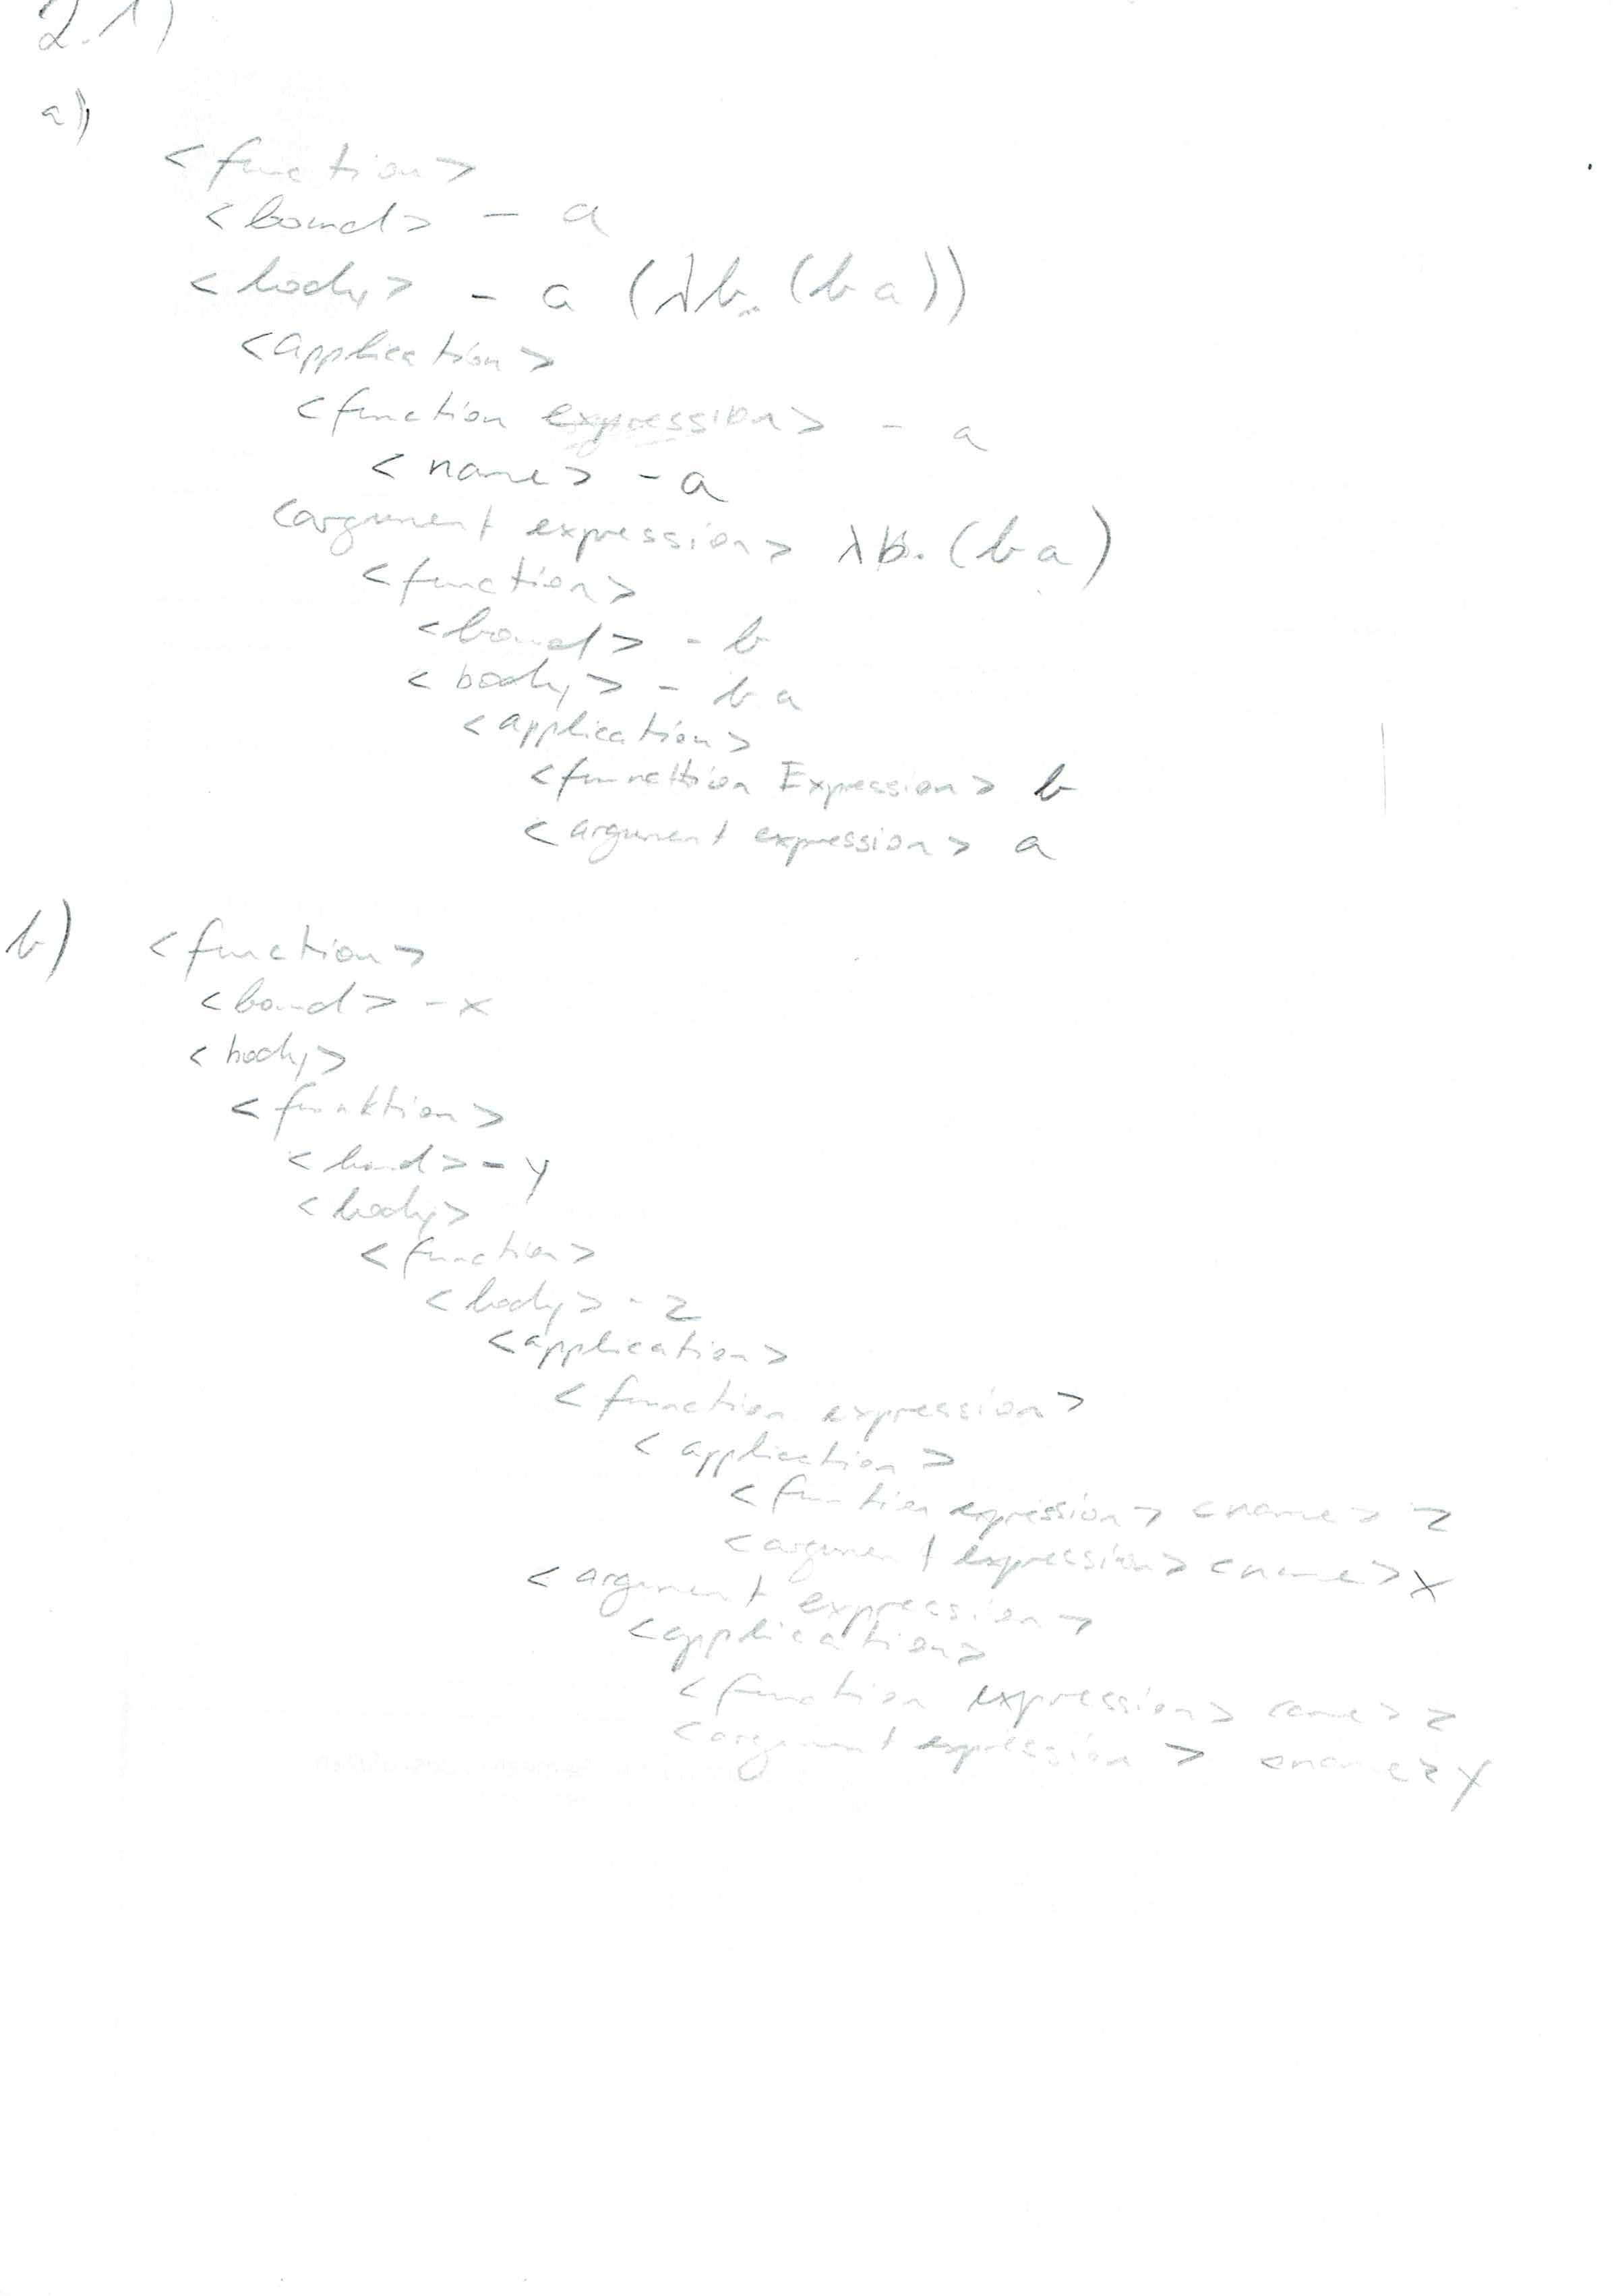 2.1)
a)
<function>
<bound> - a
<body> - a (λb. (b a))
<application>
<function expression> - a
<name> - a
<argument expression> λb. (b a)
<function>
<bound> - b
<body> - b a
<application>
<function Expression> b
<argument expression> a
b) <function>
<bound> - x
<body>
<funktion>
<bound> - y
<body>
<function>
<body> - z
<application>
<function expression>
<application>
<function expression> <name> z
<argument expression> <name> x
<argument expression>
<application>
<function expression> z
<argument expression> <name> y